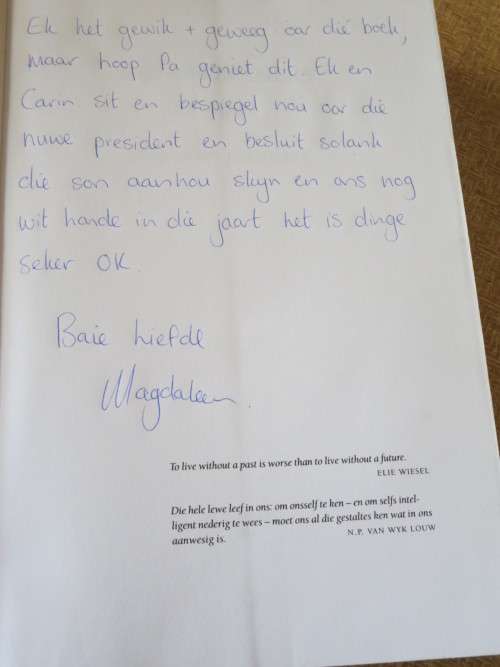 Ek het gewik + geweeg oor dié boek,
maar hoop Pa geniet dit. Ek en
Carin sit en bespiegel nou oor die
nuwe president en besluit solank
die son aanhou skyn en ons nog
wit hande in die jaart het is dinge
seker OK.
Baie liefde
Magdaleen.
To live without a past is worse than to live without a future.
ELIE WIESEL
Die hele lewe leef in ons: om onsself te ken – en om selfs intel-
ligent nederig te wees – moet ons al die gestaltes ken wat in ons
aanwesig is.
N.P. VAN WYK LOUW